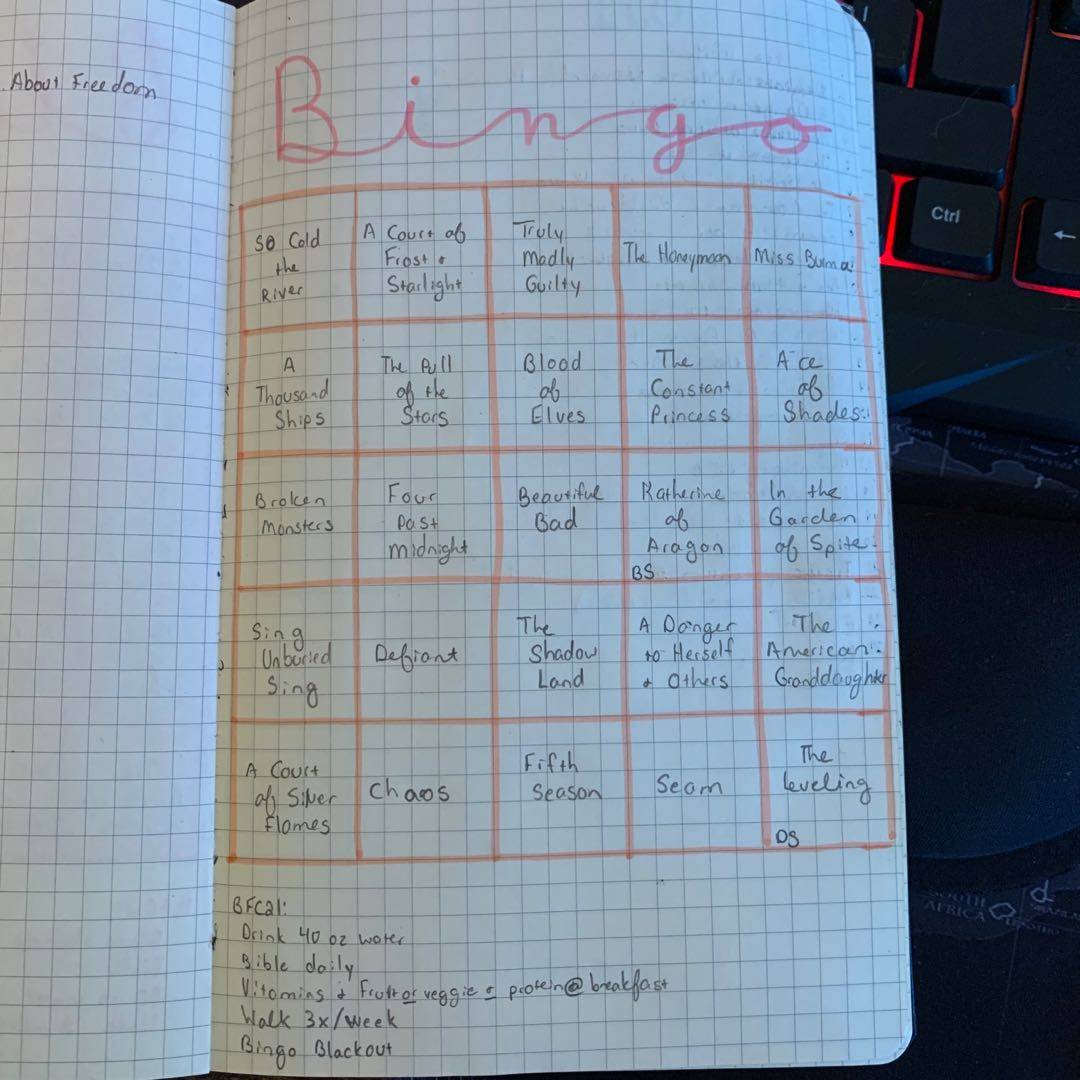 About Freedom
Bingo
So Cold
the
River
A Court of
Frost &
Starlight
Truly
Madly
Guilty
The Honeymoon
Miss Burma
A
Thousand
Ships
The Pull
of the
Stars
Blood
of
Elves
The
Constant
Princess
Ace
of
Shades
Broken
Monsters
Four
Past
Midnight
Beautiful
Bad
Katherine
of
Aragon
BS
In the
Garden
of Spite
Sing
Unburied
Sing
Defiant
The
Shadow
Land
A Danger
to Herself
& Others
The
American
Granddaughter
A Court
of Silver
Flames
Chaos
Fifth
Season
Seam
The
Leveling
DS
BFC21:
Drink 40 oz water
Bible daily
Vitamins & Fruit or veggie & protein@breakfast
Walk 3x/week
Bingo Blackout
Ctrl
←
SOUTH
AFRICA